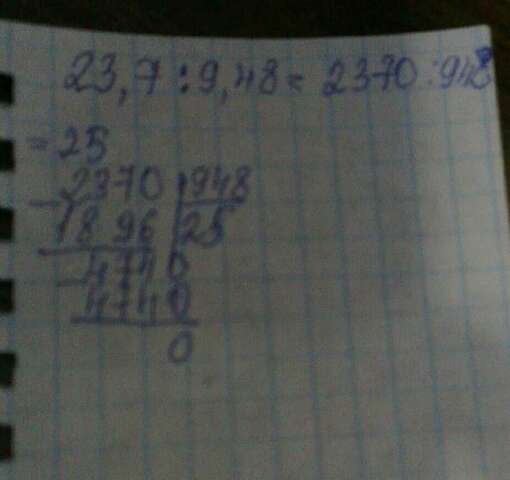 23,7 : 9,48 = 2370 : 948
= 25
2370 | 948
1896 | 25
4740
4740
0